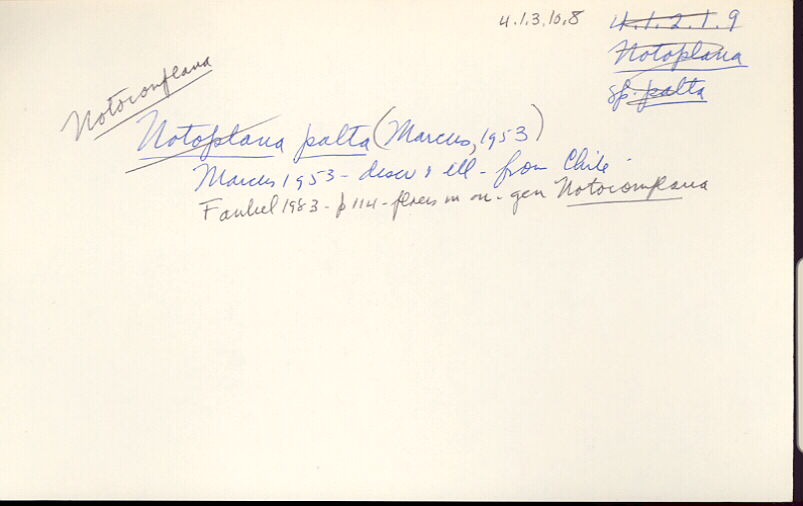 4.1.3.10.8
4.1.2.1.9
Notoplana
sp. palta
Notocomplana
Notoplana palta (Marcus, 1953)
Marcus 1953 - descr & ill - from Chile -
Faubel 1983 - p 114 - places in n. gen Notocomplana